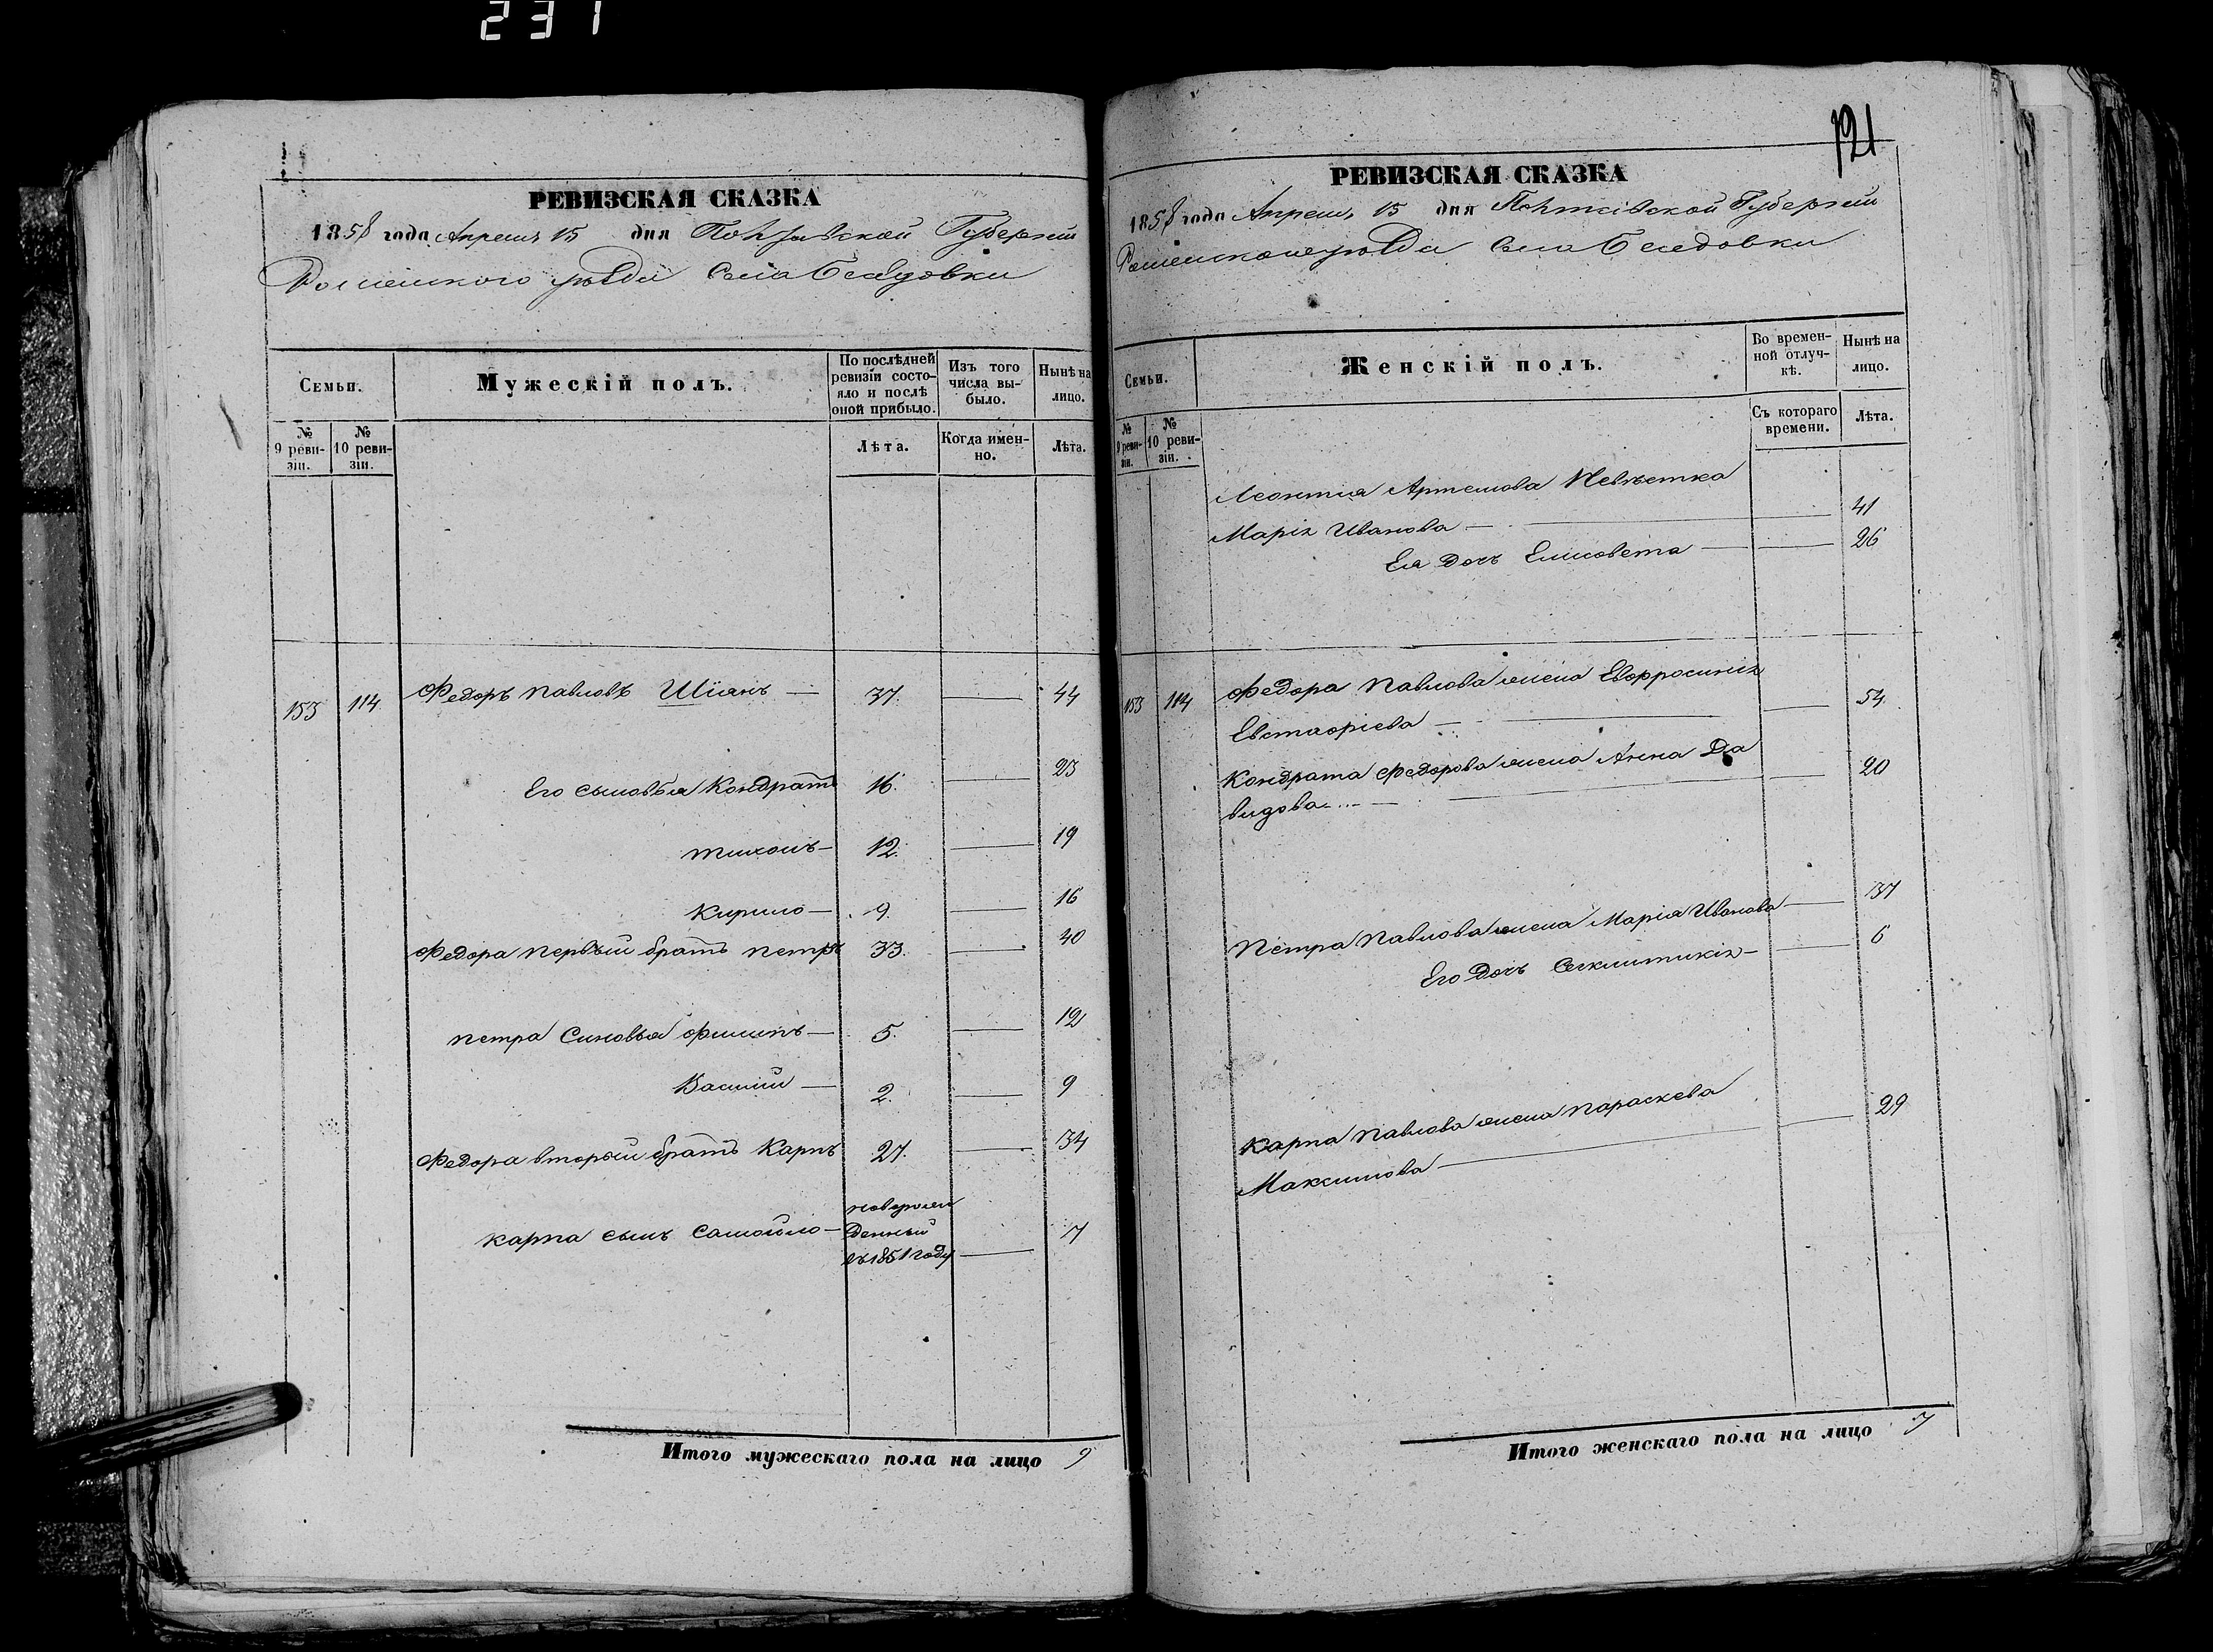 231
РЕВИЗСКАЯ СКАЗКА
1858 года Апреля 15 дня Полтавской Губернии
Роменского уѣзда Села Беседовки
Семьи.
Мужескій полъ.
По послѣдней ревизіи состояло и послѣ оной прибыло.
Изъ того числа выбыло.
Нынѣ на лицо.
№ 9 ревизіи.
№ 10 ревизіи.
Лѣта.
Когда именно.
Лѣта.
153 114 Федоръ Павловъ Шіанъ — 37. — 44
Его сыновья Кондратъ 16. — 23
Тихонъ — 12. — 19
Кирило — 9. — 16
Федора первый братъ Петръ 33. — 40
Петра Синовья Филипъ — 5. — 12
Василій — 2. — 9
Федора вторый братъ Карпъ 27. — 34
Карпа сынъ Самойло — новорож
денный
въ 1851 году — 7
Итого мужескаго пола на лицо 9
121
РЕВИЗСКАЯ СКАЗКА
1858 года Апреля 15 дня Полтавской Губернии
Роменского уѣзда Села Беседовки
Семьи.
Женскій полъ.
Во временной отлучкѣ.
Нынѣ на лицо.
№ 9 ревизіи.
№ 10 ревизіи.
Съ котораго времени.
Лѣта.
Леонтия Артемова
Марія Иванова — — 41
Ея дочь Елисовета — — 26
153 114 Федора Павлова жена Евфросинія
Евстафіева — — 54.
Кондрата Федорова жена Анна Да
видова — — 20
Петра Павлова жена Марія Иванова — 37
Его дочь — 6
Карпа Павлова жена Параскева
Максимова — — 29
Итого женскаго пола на лицо 7